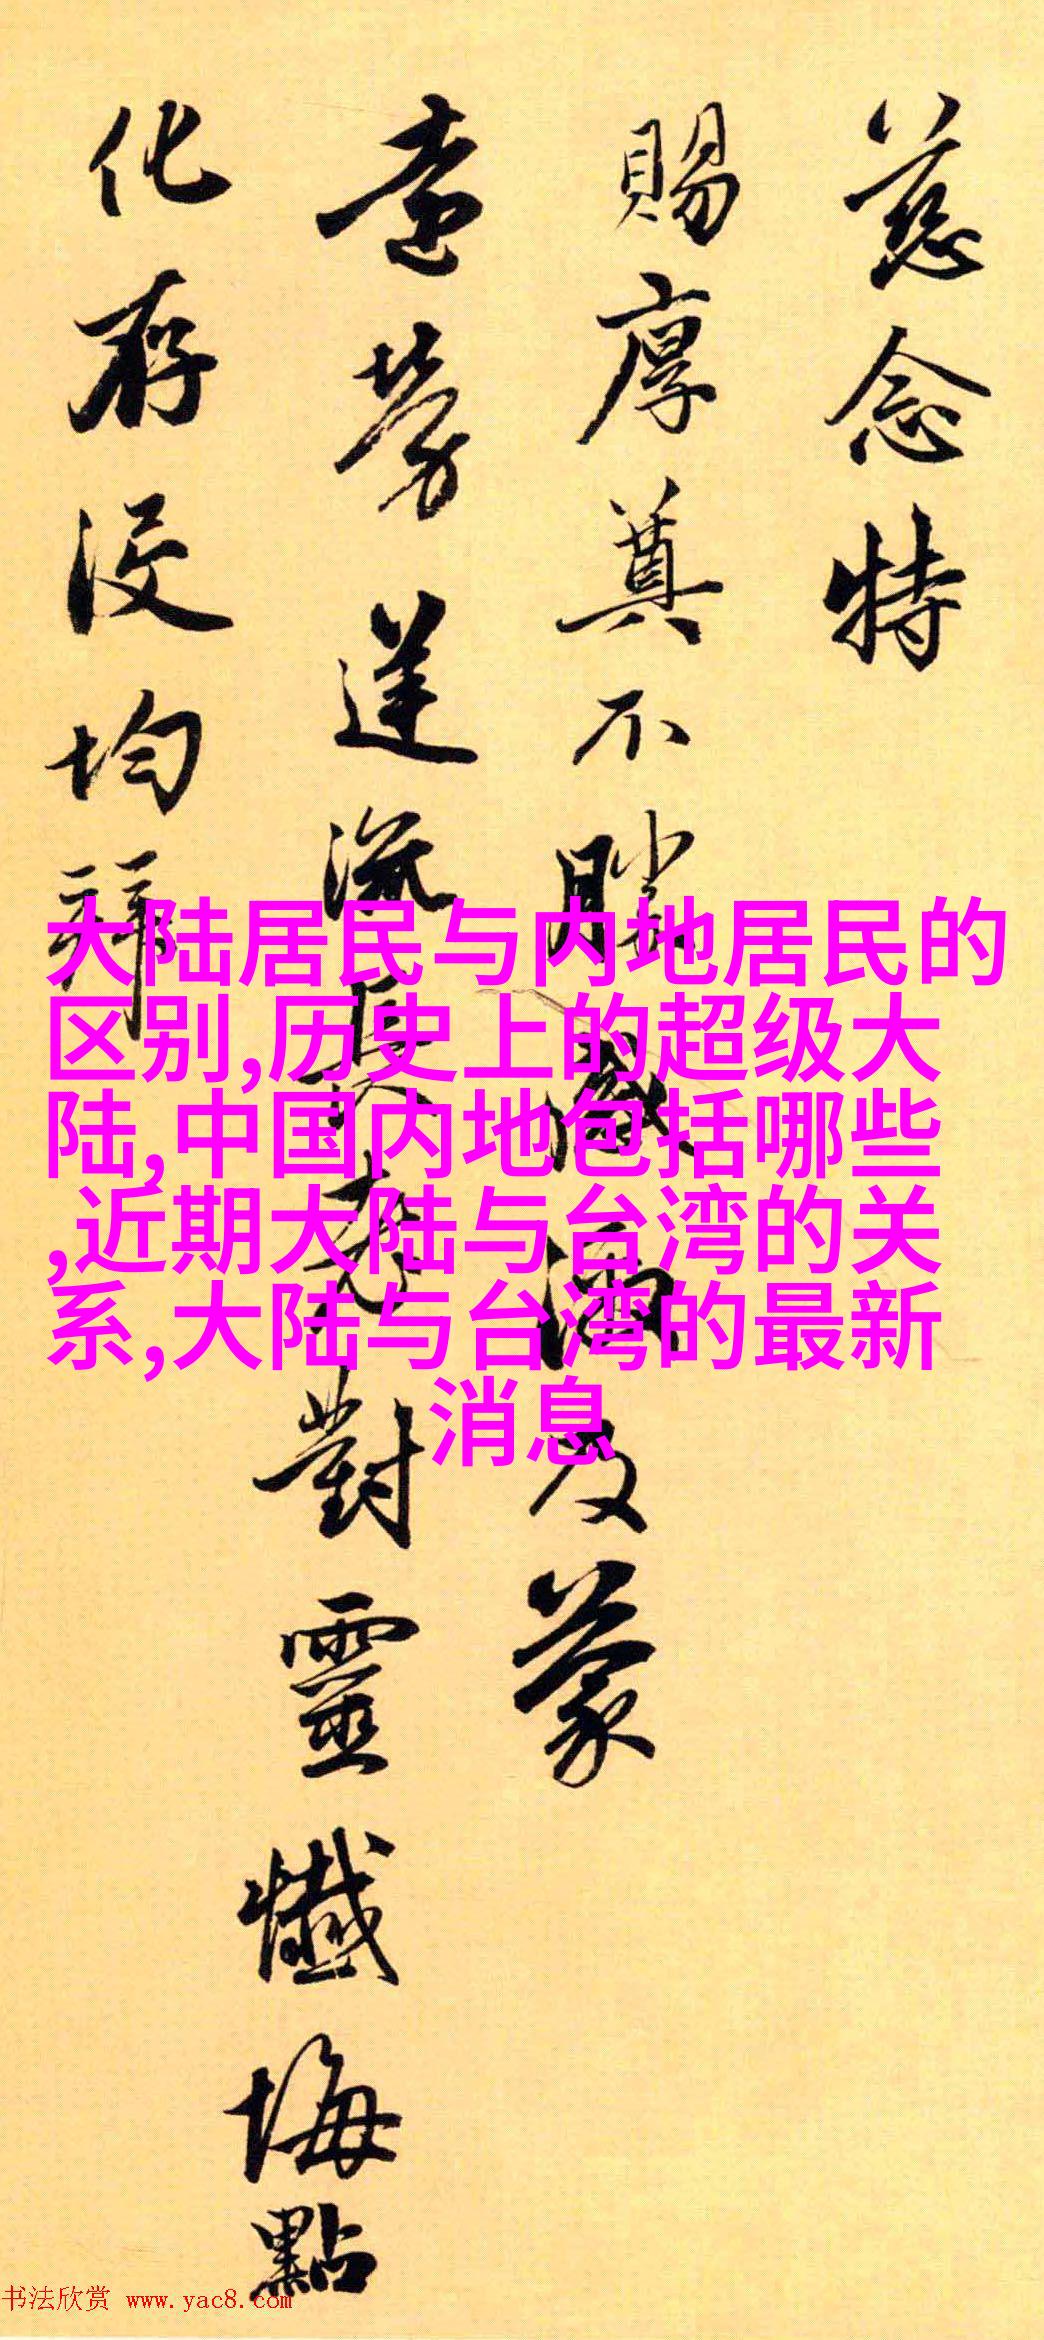 慈念特
賜厚奠不勝感激及蒙
遠勞送流長老對靈懺悔點
化存沒均拜
大陆居民与内地居民的
区别,历史上的超级大
陆,中国内地包括哪些
,近期大陆与台湾的关
系,大陆与台湾的最新
消息
书法欣赏 www.yac8.com